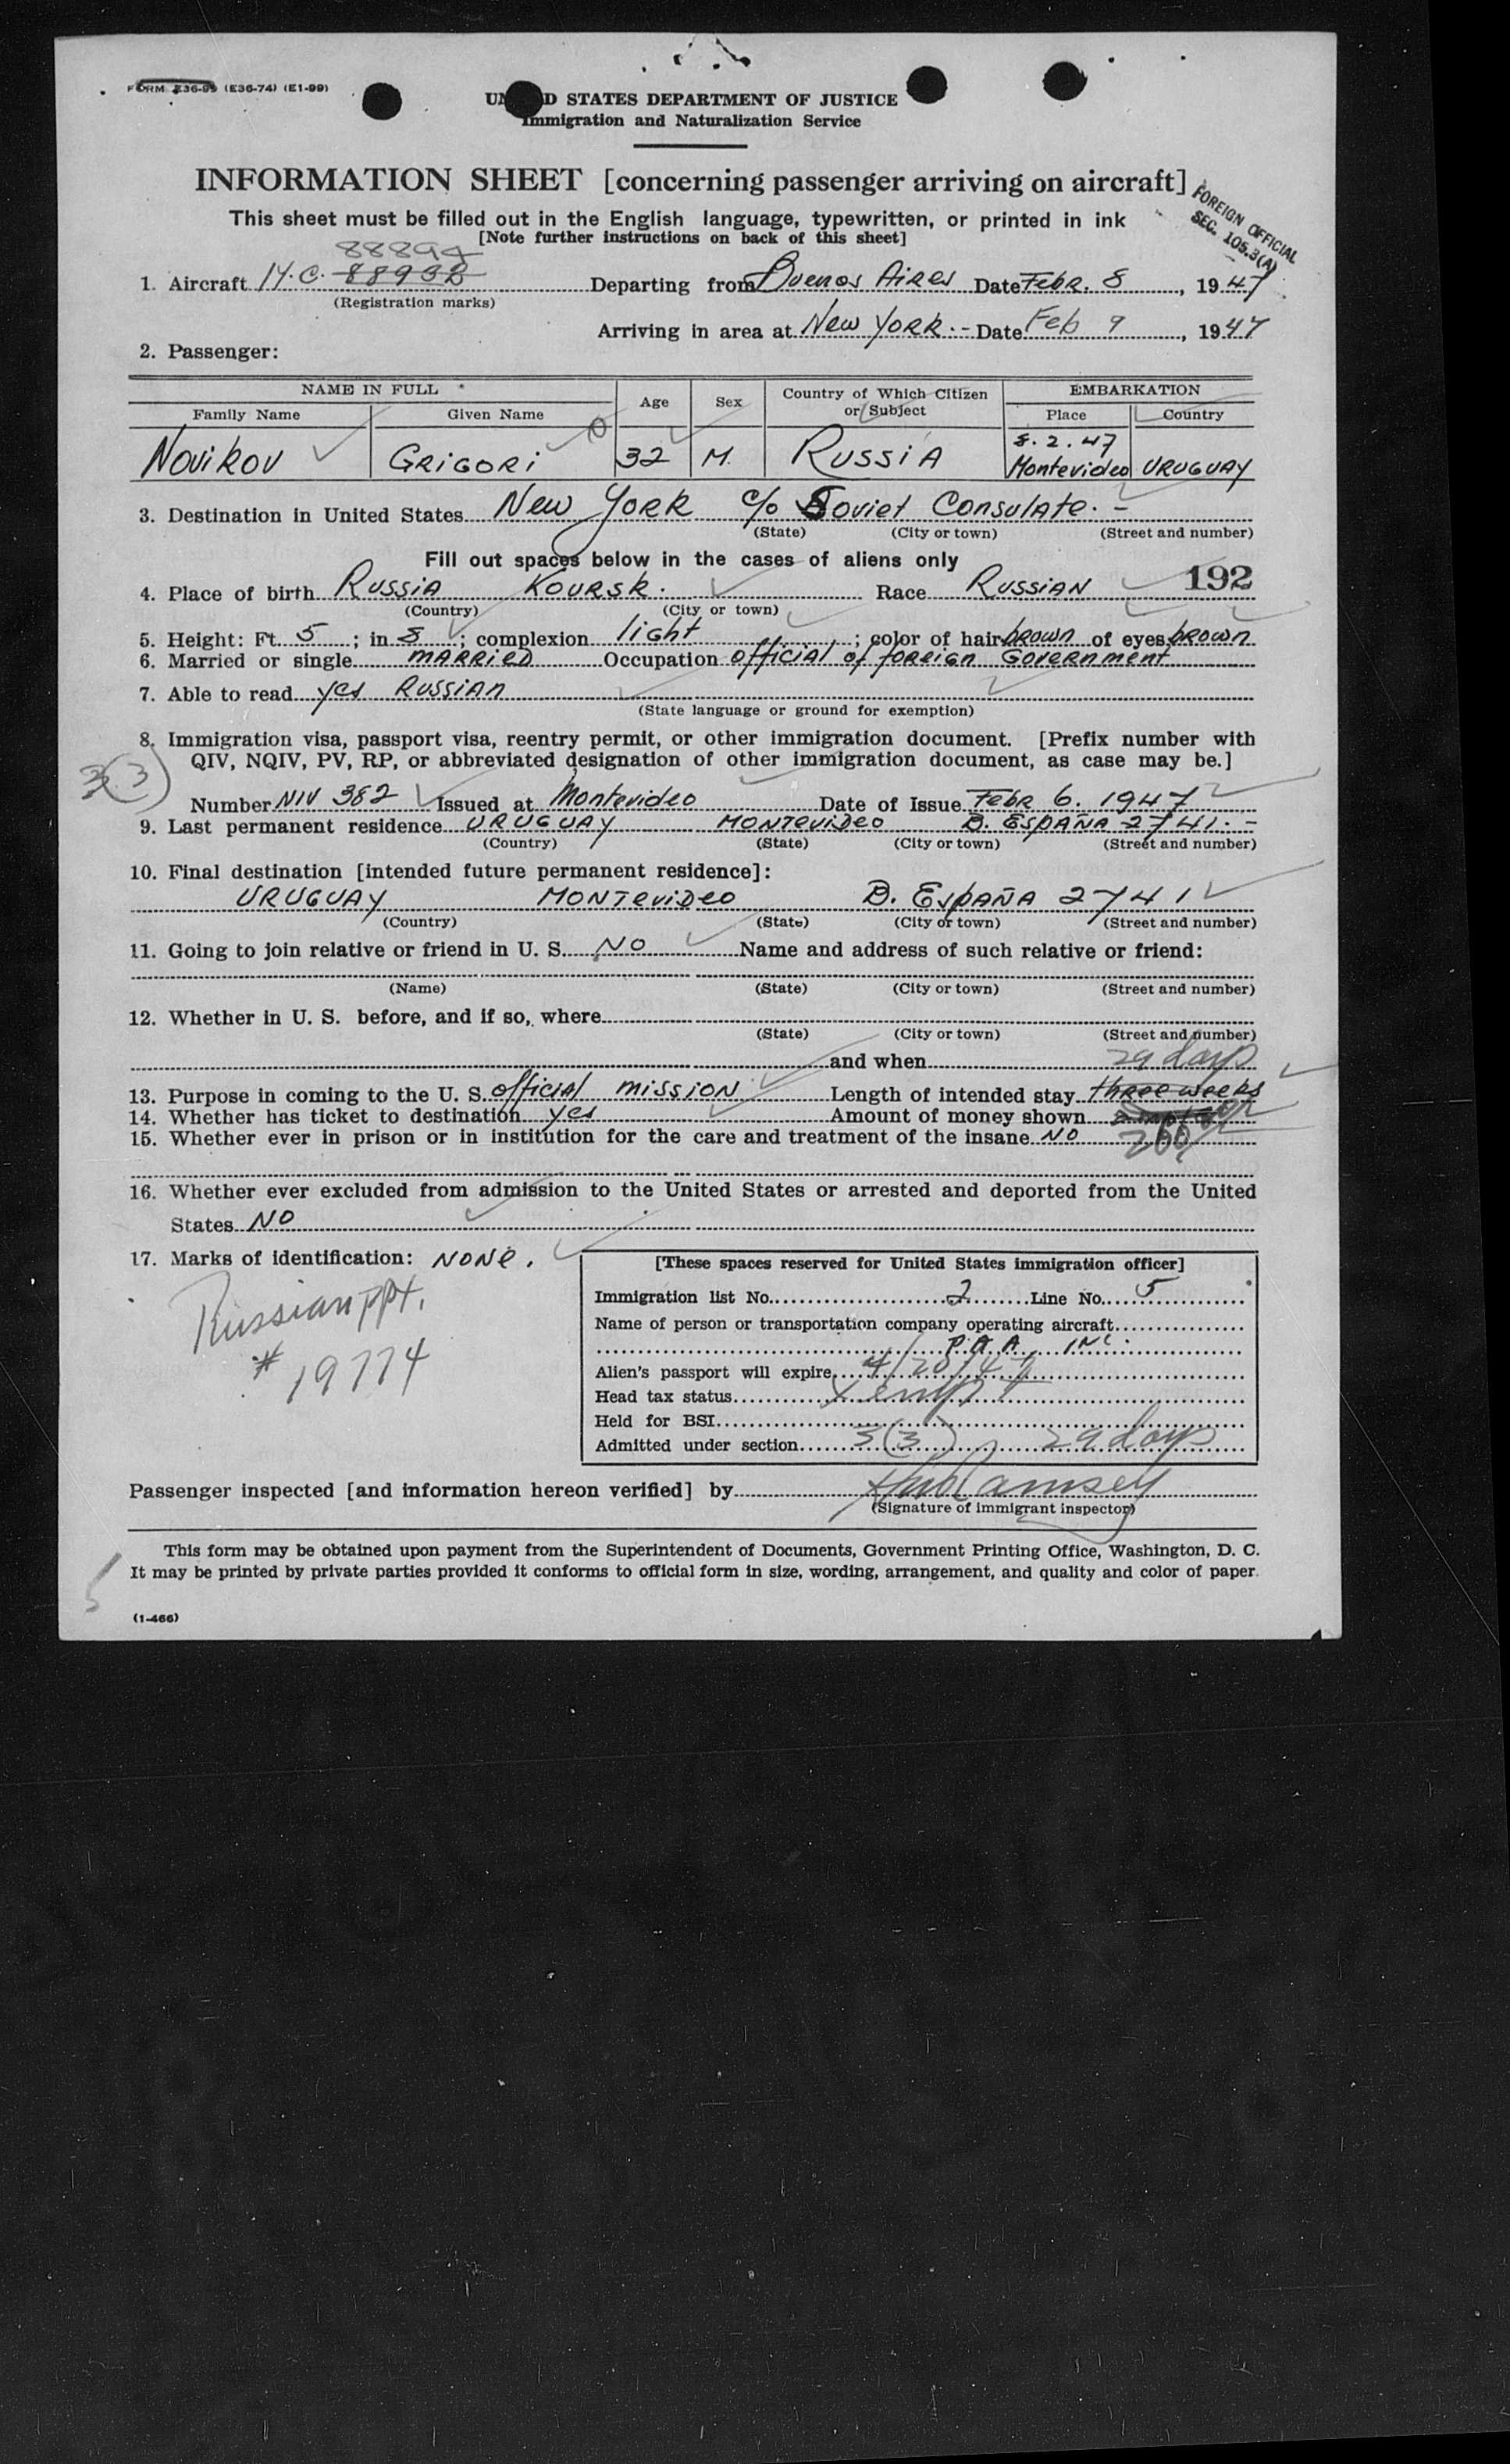 FORM E36-99 (E36-74) (E1-99)
UNITED STATES DEPARTMENT OF JUSTICE
Immigration and Naturalization Service
INFORMATION SHEET [concerning passenger arriving on aircraft]
FOREIGN OFFICIAL
SEC. 105.3(A)
This sheet must be filled out in the English language, typewritten, or printed in ink
[Note further instructions on back of this sheet]
88894
1. Aircraft N.C. 88932 Departing from Buenos Aires Date Febr. 8, 1947
(Registration marks)
Arriving in area at New York.- Date Feb 9, 1947
2. Passenger:
NAME IN FULL Age Sex Country of Which Citizen or Subject EMBARKATION
Family Name Given Name Place Country
8.2.47
Novikov GRIGORI 32 M. RUSSIA Montevideo URUGUAY
3. Destination in United States New York c/o Soviet Consulate.-
(State) (City or town) (Street and number)
Fill out spaces below in the cases of aliens only
192
4. Place of birth Russia Koursk. Race Russian
(Country) (City or town)
5. Height: Ft. 5; in 8; complexion light; color of hair brown of eyes brown
6. Married or single married Occupation official of foreign Government
7. Able to read yes Russian
(State language or ground for exemption)
8. Immigration visa, passport visa, reentry permit, or other immigration document. [Prefix number with
QIV, NQIV, PV, RP, or abbreviated designation of other immigration document, as case may be.]
3(3)
Number NIV 382 Issued at Montevideo Date of Issue Febr 6. 1947
9. Last permanent residence URUGUAY MONTEVIDEO B. ESPAÑA 2741.-
(Country) (State) (City or town) (Street and number)
10. Final destination [intended future permanent residence]:
URUGUAY MONTEVIDEO B. ESPAÑA 2741
(Country) (State) (City or town) (Street and number)
11. Going to join relative or friend in U. S. NO Name and address of such relative or friend:
(Name) (State) (City or town) (Street and number)
12. Whether in U. S. before, and if so, where
(State) (City or town) (Street and number)
and when
29 days
13. Purpose in coming to the U. S. official mission Length of intended stay three weeks
14. Whether has ticket to destination yes Amount of money shown
15. Whether ever in prison or in institution for the care and treatment of the insane NO
16. Whether ever excluded from admission to the United States or arrested and deported from the United
States NO
17. Marks of identification: NONE.
Russian ppt.
# 19774
[These spaces reserved for United States immigration officer]
Immigration list No. 2 Line No. 5
Name of person or transportation company operating aircraft
P A A INC.
Alien's passport will expire 4/20/47
Head tax status Xempt
Held for BSI
Admitted under section 3(3) 29 days
Passenger inspected [and information hereon verified] by Ramsey
(Signature of immigrant inspector)
This form may be obtained upon payment from the Superintendent of Documents, Government Printing Office, Washington, D. C.
It may be printed by private parties provided it conforms to official form in size, wording, arrangement, and quality and color of paper.
(1-466)